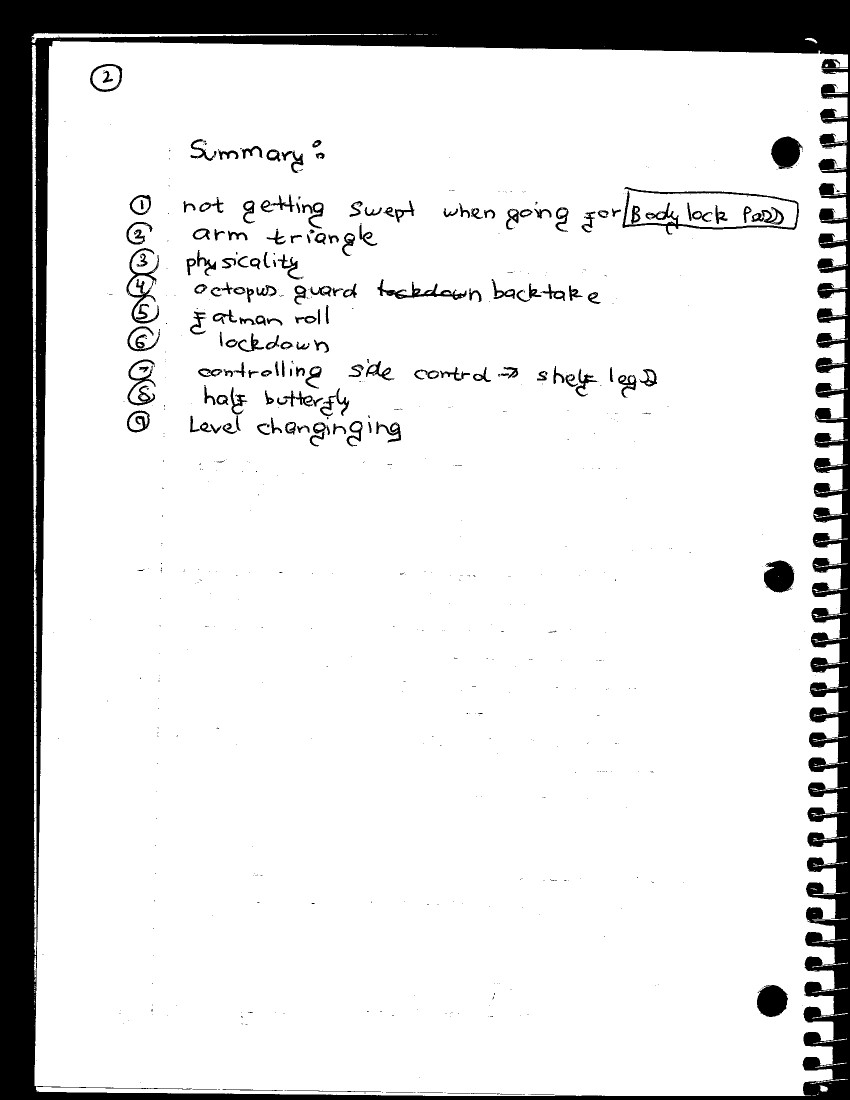 2
Summary:
1 not getting swept when going for Body lock Pass
2 arm triangle
3 physicality
4 octopus guard lockdown backtake
5 fatman roll
6 lockdown
7 controlling side control → shelf legs
8 half butterfly
9 Level changinging